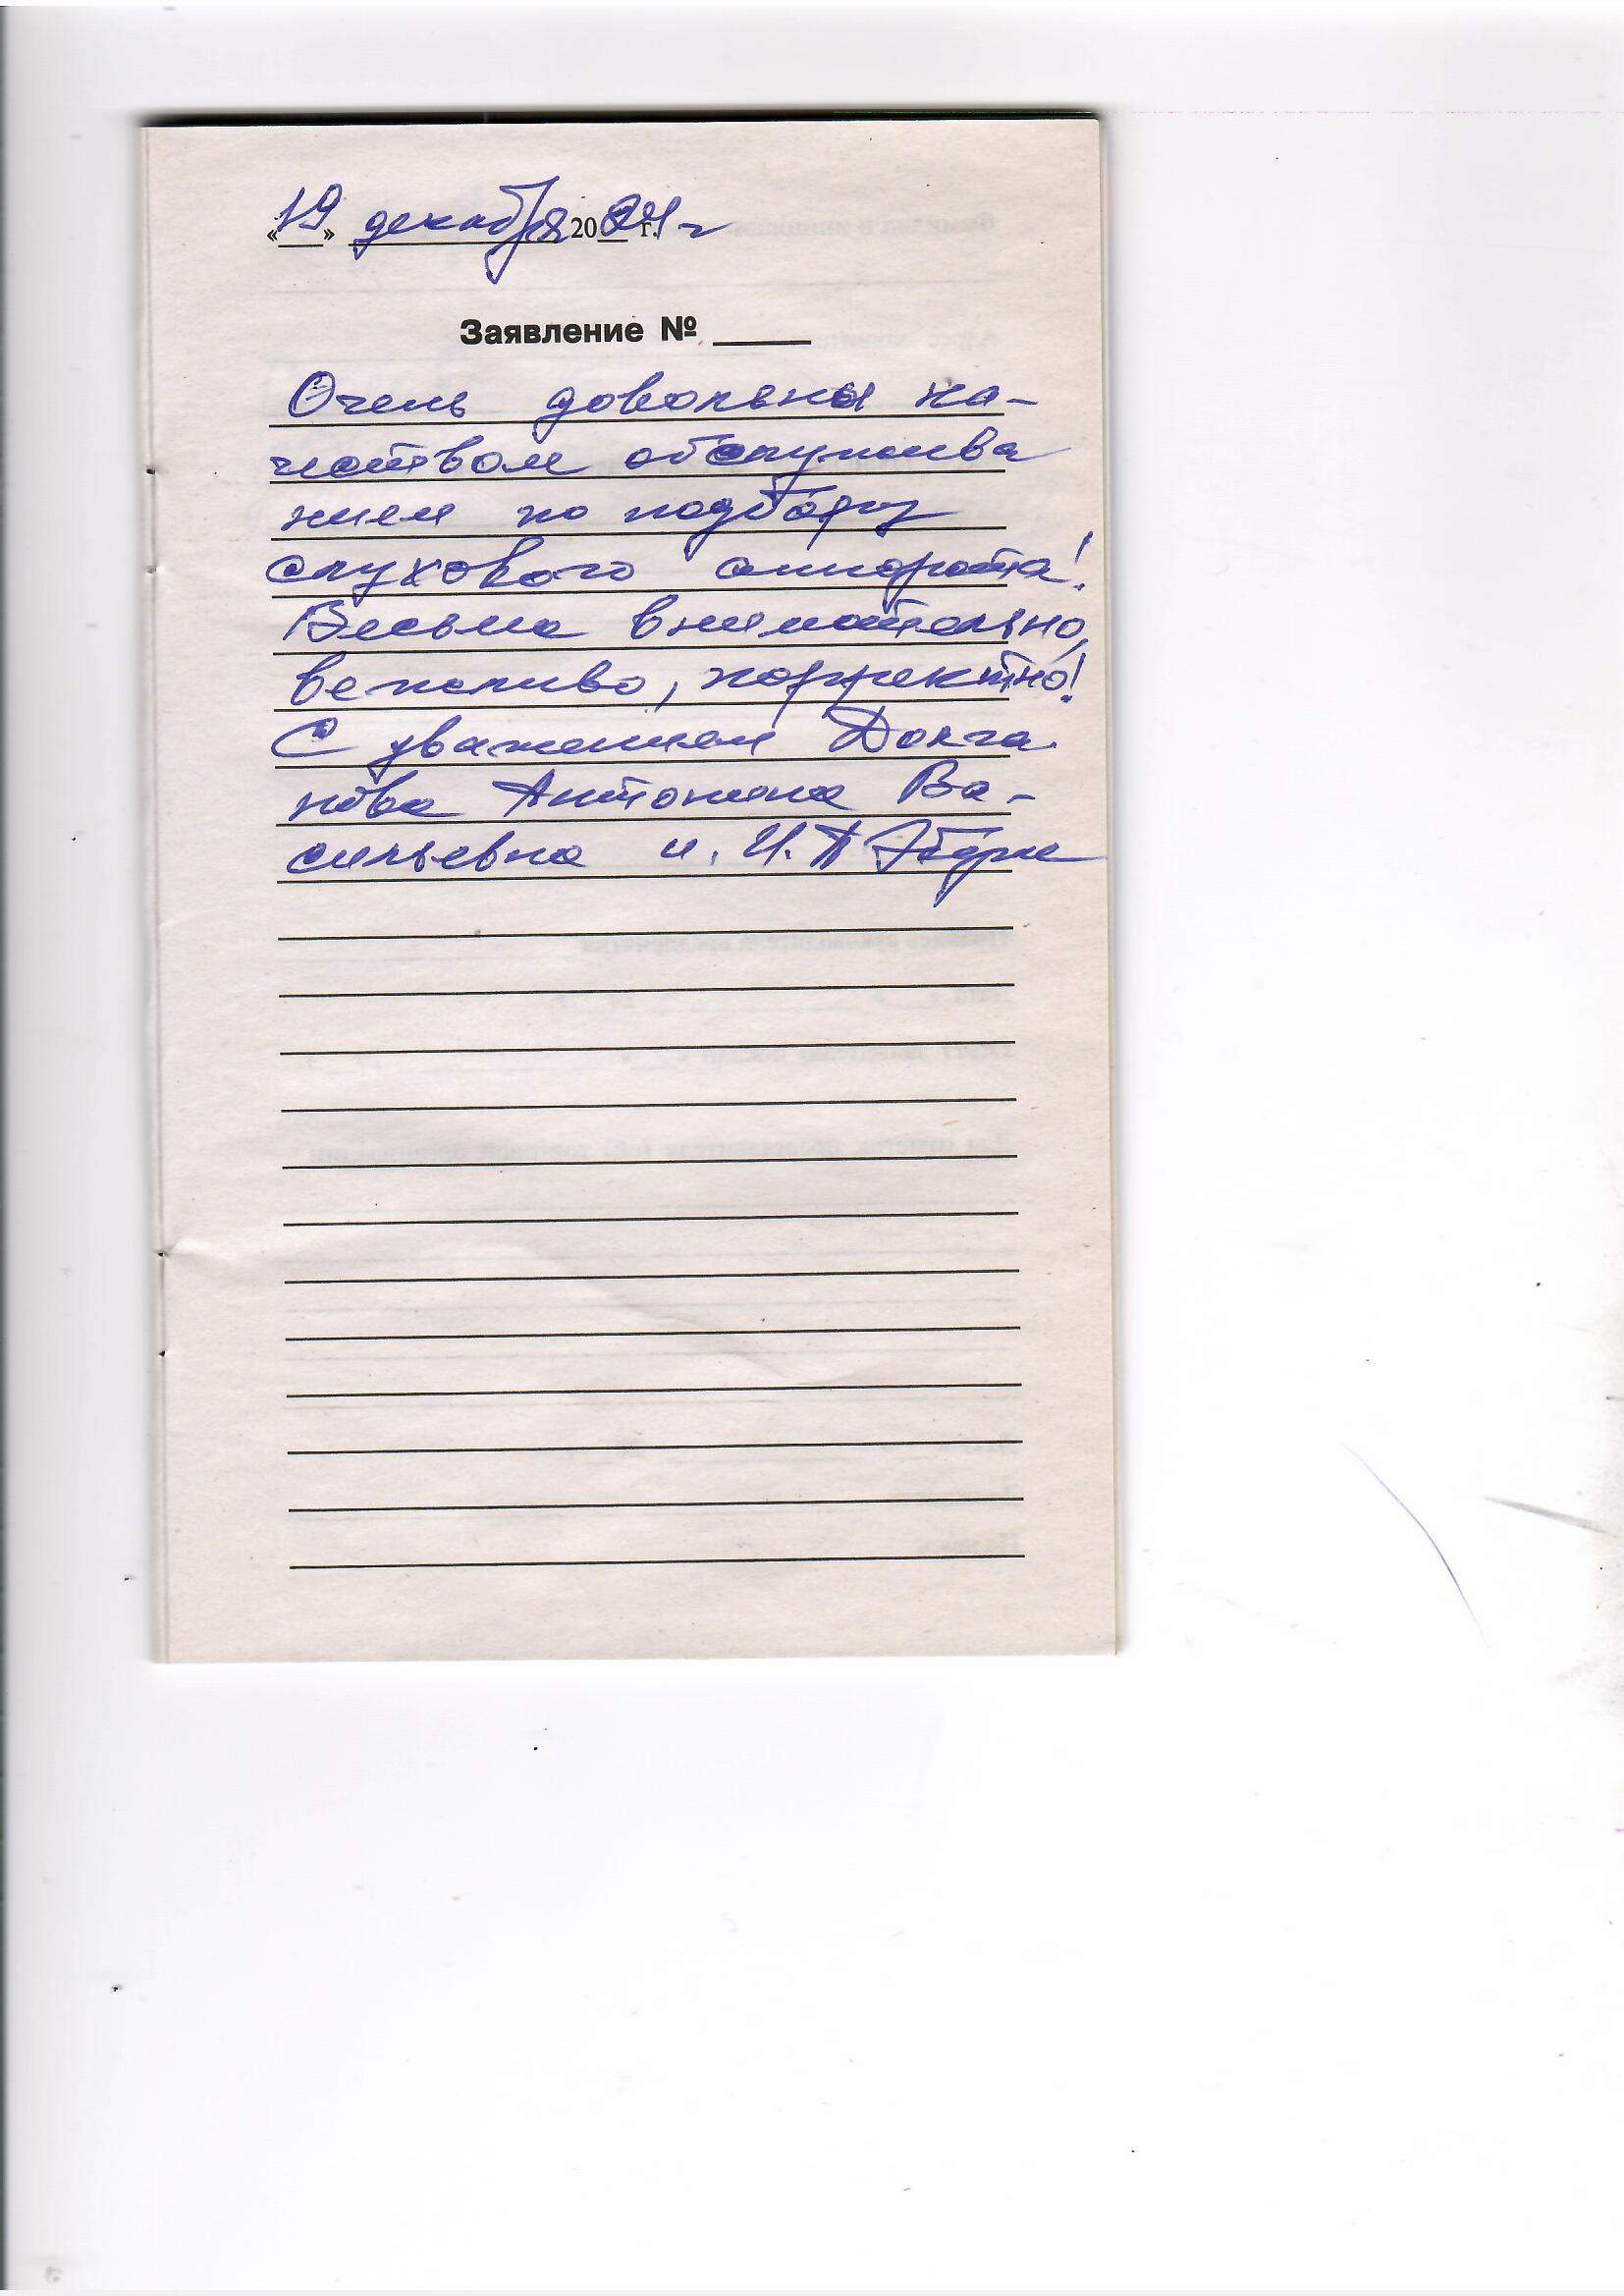 «19» декабря 2024 г
Заявление № ____
Очень довольны ка-
чеством обслужива
нием по подбору
слухового аппарата!
Весьма внимательно,
вежливо, корректно!
С уважением
Антонина Ва-
сильевна и. И. А